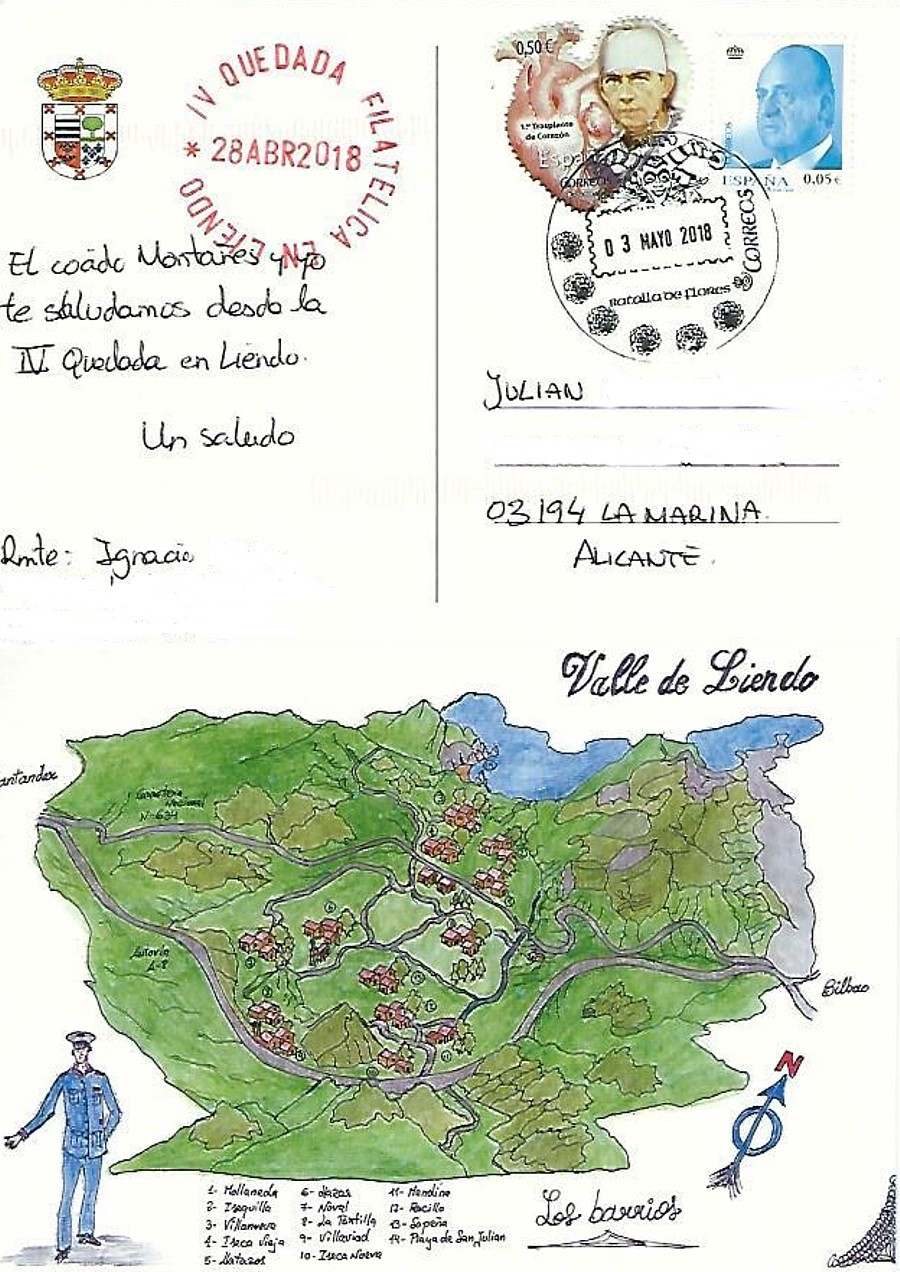 IV QUEDADA FILATELICA EN LIENDO
* 28ABR2018
0,50 €
1.er Trasplante
de Corazón
España
CORREOS
ESPAÑA 0,05 €
CORREOS
03 MAYO 2018
Batalla de Flores
El coado Montañes y yo
te saludamos desde la
IV Quedada en Liendo.
Un saludo
Rmte: Ignacio
JULIAN
03194 LA MARINA.
ALICANTE.
Valle de Liendo
Santander
Carretera
Nacional
N-634
Autovia
A-8
Bilbao
N
1- Mollaneda
2- Isequilla
3- Villanueva
4- Iseca Vieja
5- Hatazos
6- Hazas
7- Noval
8- La Portilla
9- Villaviad
10- Iseca Nueva
11- Mendina
12- Rocillo
13- Sopeña
14- Playa de San Julian
Los barrios